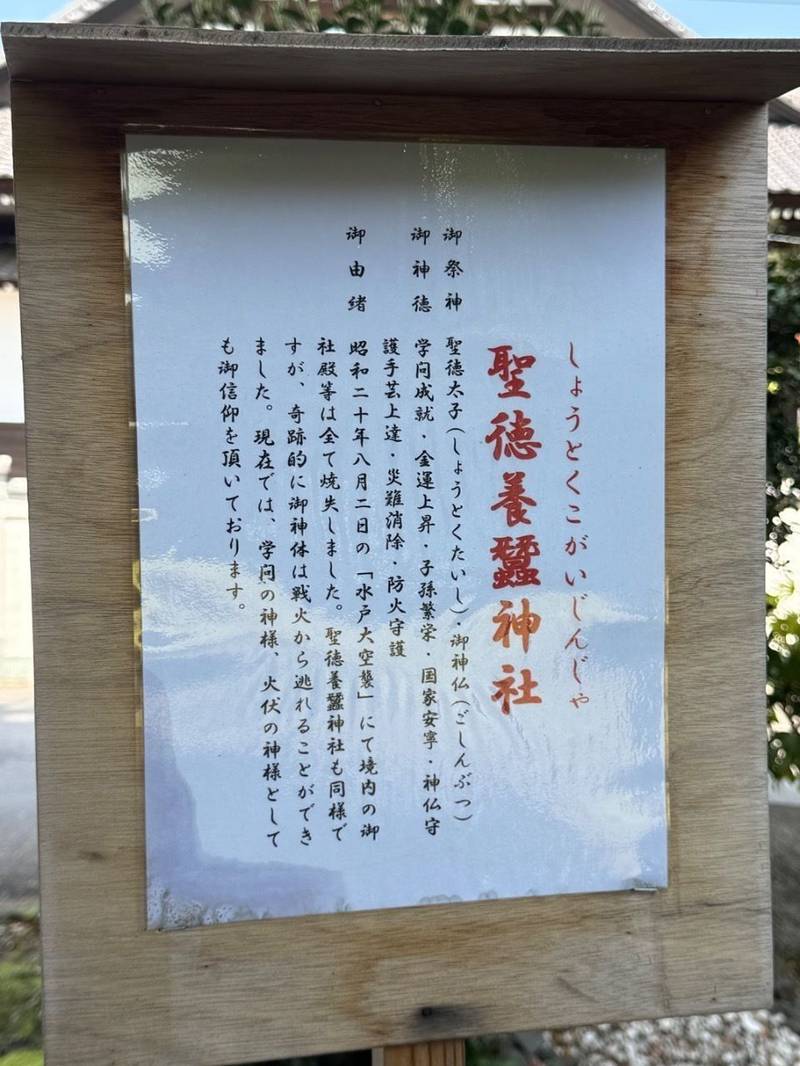 しょうとくこがいじんじゃ
聖徳養蠶神社
御祭神 聖徳太子(しょうとくたいし)・御神仏(ごしんぶつ)
御神徳 学问成就・金運上昇・子孫繁栄・国家安寧・神仏守
護手芸上達・災難消除・防火守護
御由緒 昭和二十年八月二日の「水戸大空襲」にて境内の御
社殿等は全て焼失しました。聖徳養蠶神社も同様で
すが、奇跡的に御神体は戦火から逃れることができ
ました。現在では、学问の神様、火伏の神様として
も御信仰を頂いております。